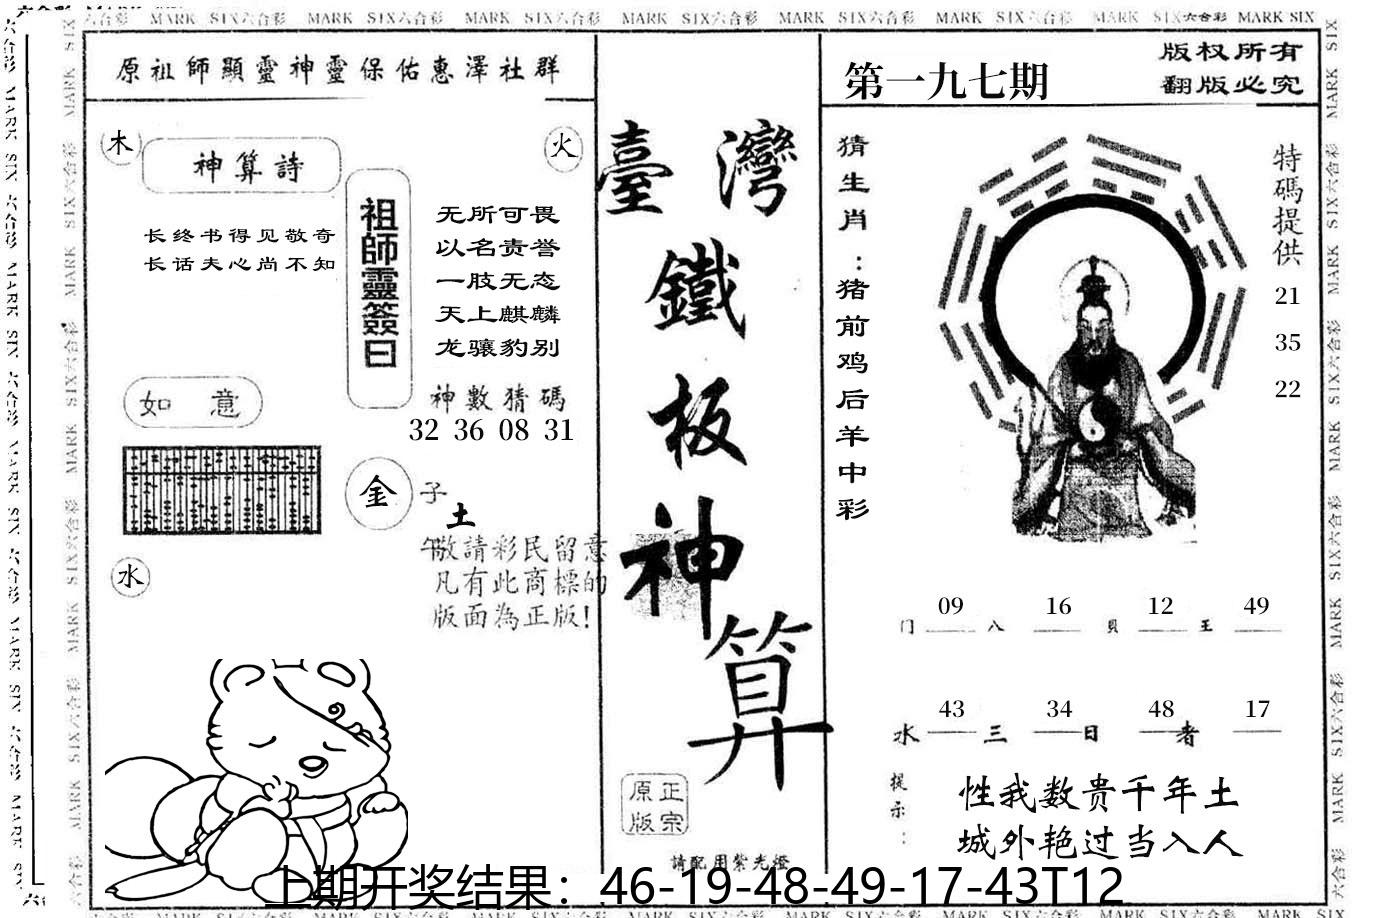 MARK SIX六合彩 MARK SIX六合彩 MARK SIX六合彩 MARK SIX六合彩 MARK SIX六合彩 MARK SIX六合彩 MARK SIX六合彩 MARK SIX
原祖師顯靈神靈保佑惠澤社群
木
神算詩
火
长终书得见敬奇
长话夫心尚不知
祖師靈簽曰
无所可畏
以名责誉
一肢无态
天上麒麟
龙骧豹别
如 意
神數猜碼
32 36 08 31
金
子
土
午
敬請彩民留意
凡有此商標的
版面為正版!
水
臺灣
鐵
板
神
算
正宗
原版
請配用紫光燈
第一九七期
版权所有
翻版必究
猜生肖：猪前鸡后羊中彩
特碼提供
21
35
22
09 16 12 49
门 八 貝 王
43 34 48 17
水 三 日 者
提示：
性我数贵千年土
城外艳过当入人
上期开奖结果：46-19-48-49-17-43T12